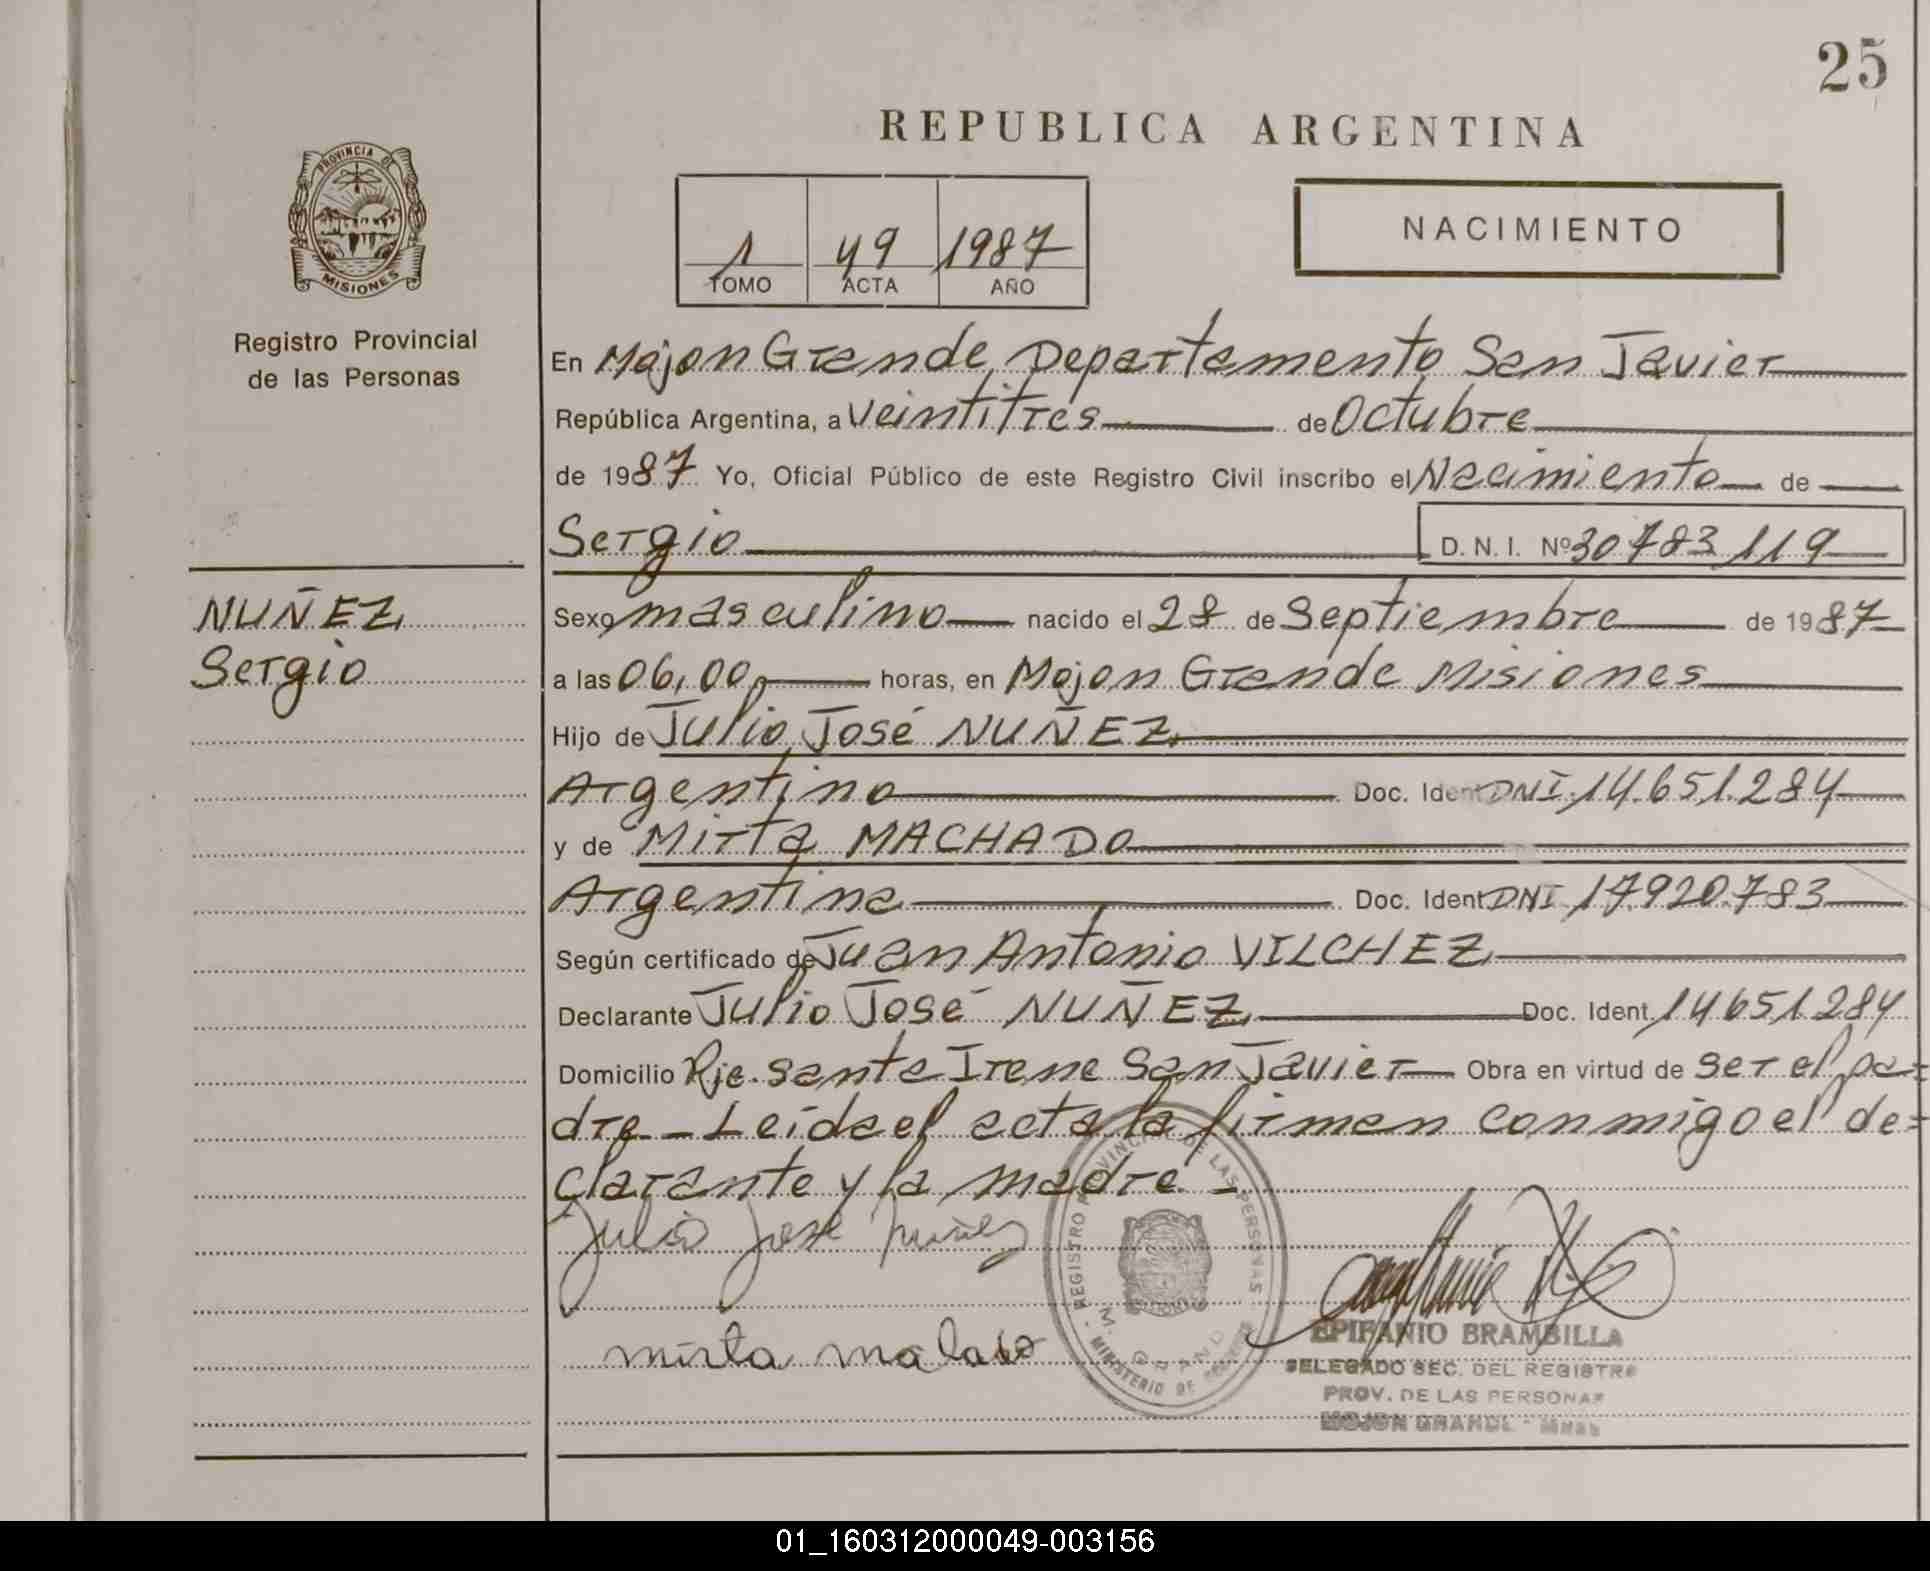 25
REPUBLICA ARGENTINA
PROVINCIA DE
MISIONES
Registro Provincial
de las Personas
1 49 1987
TOMO ACTA AÑO
NACIMIENTO
En Mojon Grande, Departamento San Javier
República Argentina, a Veintitres de Octubre
de 1987 Yo, Oficial Público de este Registro Civil inscribo el Nacimiento de
Sergio D. N. I. Nº 30783119
NUÑEZ
Sergio
Sexo masculino nacido el 28 de Septiembre de 1987
a las 06,00 horas, en Mojon Grande Misiones
Hijo de Julio José NUÑEZ
Argentino Doc. Ident DNI.14.651.284
y de Mirta MACHADO
Argentina Doc. Ident DNI 17920.783
Según certificado de Juan Antonio VILCHEZ
Declarante Julio José NUÑEZ Doc. Ident 14651284
Domicilio Pje. Santa Irene San Javier Obra en virtud de ser el pa=
dre - Leida el acta la firman conmigo el de=
clarante y la madre -
Julio José Nuñez
mirta
REGISTRO PROVINCIAL DE LAS PERSONAS
M. GRANDE
MINISTERIO DE
EPIFANIO BRAMBILLA
DELEGADO SEC. DEL REGISTRO
PROV. DE LAS PERSONAS
MOJON GRANDE - Mnes
01_160312000049-003156